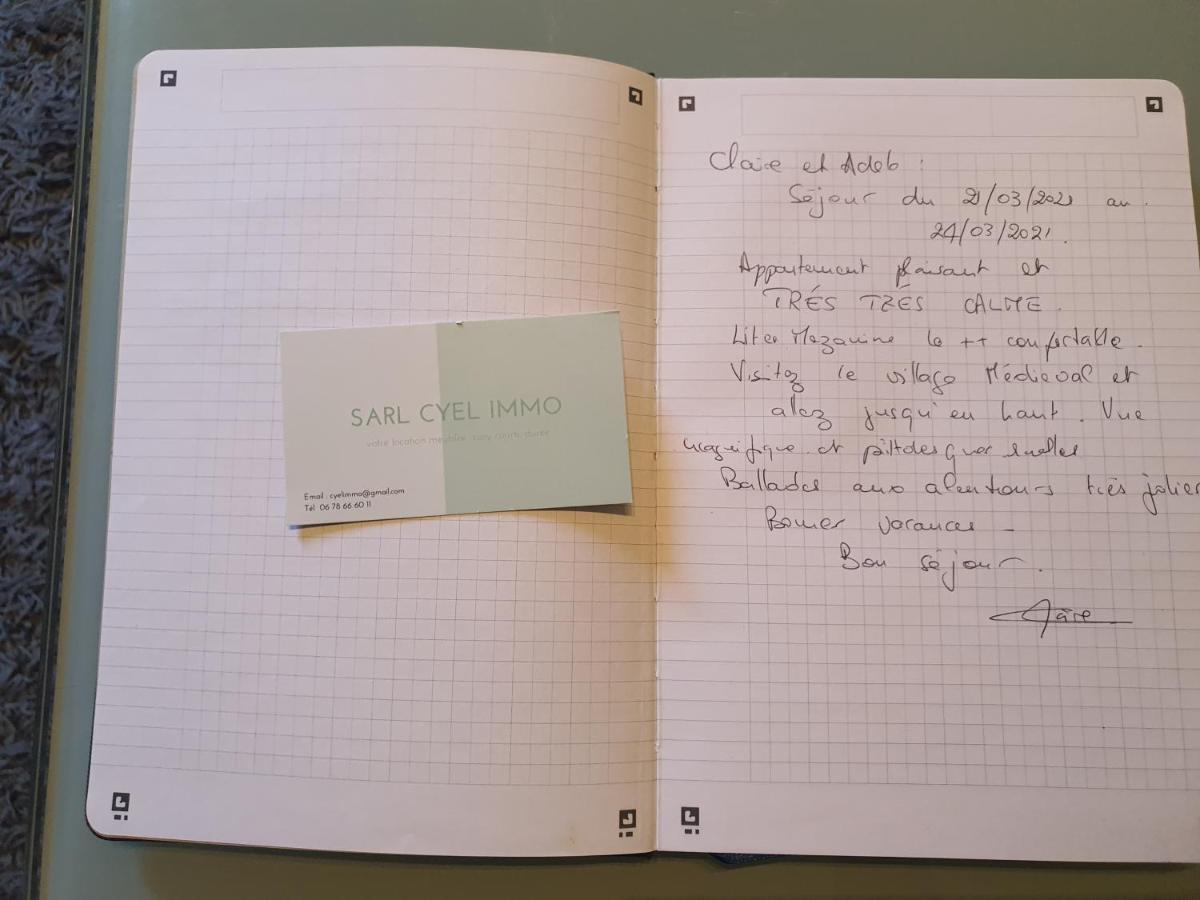 SARL CYEL IMMO
votre location meublée courte durée
Email : cyelimmo@gmail.com
Tél 06 78 66 60 11
Claire et Adeb :
Séjour du 21/03/2021 au
24/03/2021.
Appartement plaisant et
TRÉS TRÉS CALME.
Liter Mezanine le ++ confortable.
Visitez le village Médieval et
alez jusqu'en haut. Vue
magnifique et ruelles
Ballades aux alentours très jolies
Bonnes vacances -
Bon séjour.
Claire